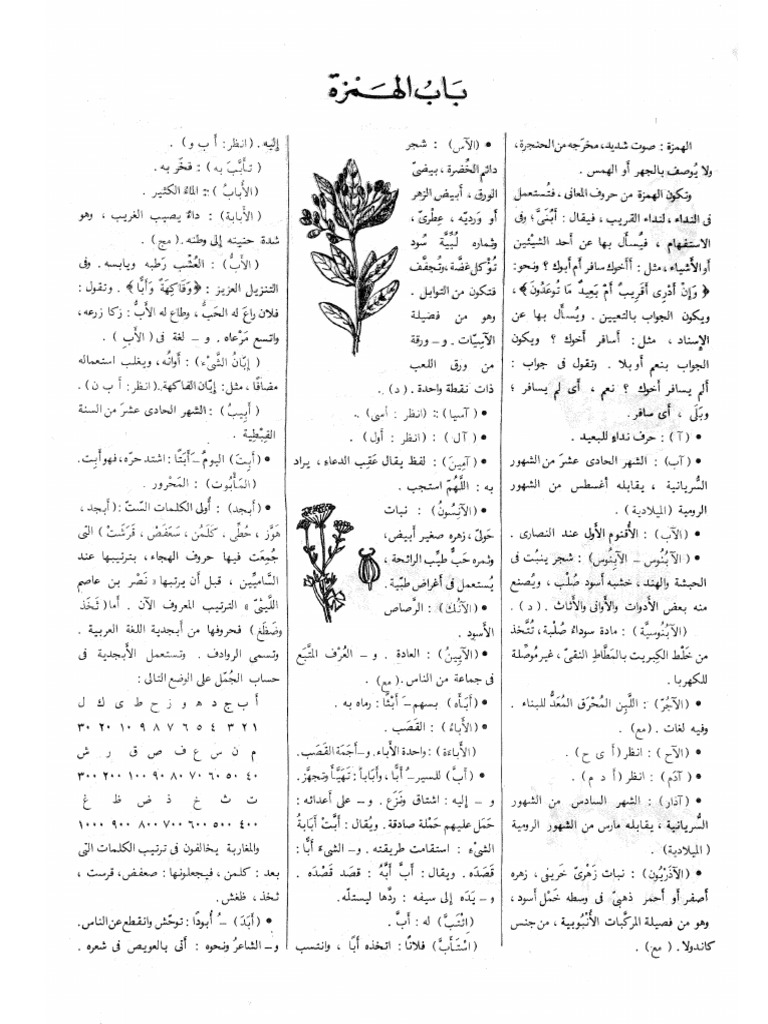 بَابُ الهَمزة
الهمزة : صوت شديد، مخرَجه من الحنجرة،
ولا يُوصف بالجهر أو الهمس .
وتكون الهمزة من حروف المعانى ، فتُستعمل
فى النداء، لنداء القريب ، فيقال : أَبُنَىَّ؛ وفى
الاستفهام ، فيُسأل بها عن أحد الشيئين
أو الأشياء ، مثل : أأخوك سافر أم أبوك ؟ ونحو:
﴿ وَإِنْ أَدْرِى أَقَرِيبٌ أَمْ بَعِيدٌ مَا تُوعَدُونَ ﴾ ،
ويكون الجواب بالتعيين . ويُسأل بها عن
الإسناد ، مثل : أسافر أخوك ؟ ويكون
الجواب بنعم أو بلا . وتقول فى جواب :
ألم يسافر أخوك ؟ نعم ، أى لم يسافر ؛
وبَلَى ، أى سافر .
• (آ) : حرف نداءٍ للبعيد .
• (آب) : الشهر الحادى عشر من الشهور
السُّريانية ، يقابله أغسطس من الشهور
الرومية (الميلادية) .
• (الآب) : الأُقنوم الأَول عند النصارى .
• (الآبَنُوس – الآبِنُوس) : شجر ينبُت فى
الحبشة والهند، خشبه أسود صُلْب ، ويُصنع
منه بعض الأدوات والأوانى والأثاث . ( د ) .
(الآبَنُوسيَّة) : مادة سوداءُ صُلبة، تُتَّخذ
من خَلْط الكِبريت بالمَطَّاط النقىّ، غير مُوصِّلة
للكهربا .
• (الآجُرّ) : اللَّبِن المُحْرَق المُعَدُّ للبناء .
وفيه لغات . (مع) .
• (الآح) : انظر ( أ ى ح ) .
• (آدَم) : انظر ( أ د م ) .
• (آذار) : الشهر السادس من الشهور
السُّريانية ، يقابله مارس من الشهور الرومية
(الميلادية) .
• (الآذَرْيُون) : نبات زَهْرىّ خَريفى ، زهره
أصفر أو أحمر ذهبىّ فى وسطه خَمْل أسود ،
وهو من فصيلة المركَّبات الأُنْبُوبية ، من جنس
كاندولا . (مع) .
• (الآس) : شجر
دائم الخُضرة ، بيضىّ
الورق ، أبيض الزهر
أو وَرديّه ، عِطْرىّ ،
وثماره لُبِّيَّة سُود
تُؤكل غَضَّة ، وتُجفَّف
فتكون من التوابل .
وهو من فصيلة
الآسِيّات . و – ورقة
من ورق اللعب
ذات نقطة واحدة . ( د ) .
• (آسيا) : (انظر : أسى) .
• (آل) : (انظر : أول) .
• (آمِينَ) : لفظ يقال عَقِب الدعاء ، يراد
به : اللَّهُمّ استجب .
• (الآنِسُونُ) : نبات
حَوْلىّ ، زهره صغير أبيض،
وثمره حَبٌّ طيِّب الرائحة ،
يُستعمل فى أغراض طبِّية .
• (الآنُك) : الرَّصاص
الأَسود .
• (الآيِينُ) : العادة . و – العُرْف المتَّبَع
فى جماعة من الناس . (مع) .
• (أَبَأَه) بسهم – أَبْئًا : رماه به .
• (الأَبَاءُ) : القَصَب .
(الأَبَاءَة) : واحدة الأَباء . و – أَجَمة القَصَب .
• (أَبَّ) للسير – ُ أَبًّا ، وأَبَاباً : تَهَيَّأَ وتجهَّز .
و – إليه : اشتاق ونَزَع . و – على أعدائه :
حَمَل عليهم حَمْلة صادقة . ويُقال : أَبَّتْ أَبَابَةُ
الشىءِ : استقامت طريقته . و – الشىءَ أَبًّا :
قَصَدَه . ويقال : أَبَّ أَبَّهُ : قَصد قَصْدَه .
و – يَدَه إلى سيفه : ردَّها ليستلّه .
(ائْتَبَّ) له : أَبَّ .
(اسْتَأَبَّ) فلاناً : اتخذه أباً ، وانتسب
إليه . (انظر : أ ب و) .
( تَأَبَّبَ به) : فخَر به .
(الأُبابُ) : الماءُ الكثير .
(الأَبابة) : داءٌ يصيب الغريب ، وهو
شدة حنينه إلى وطنه . ( مج ) .
(الأَبُّ) : العُشْب رَطبه ويابسه . وفى
التنزيل العزيز : ﴿ وَفَاكِهَةً وَأَبًّا ﴾ . وتقول :
فلان راعَ له الحَبُّ ، وطاع له الأَبُّ : زكا زرعه،
واتسع مَرْعاه . و – لغة فى ( الأَبِ ) .
( إبَّانُ الشَّىْءِ ) : أَوانُه ، ويغلب استعماله
مضافًا ، مثل: إِبَّان الفاكهة . (انظر: أ ب ن) .
(أَبِيبُ) : الشهر الحادى عشر من السنة
القِبْطية .
• (أَبِتَ) اليومُ – أَبَتًا : اشتد حره، فهو أبِت .
(المَأْبُوت) : المَحْرور .
• (أبجد) : أُولى الكلمات السِّتّ : (أبجد ،
هَوَّز ، حُطِّى ، كَلَمُن ، سَعْفَص ، قَرَشَتْ ) التى
جُمِعَت فيها حروف الهجاء ، بترتيبها عند
السَّامِيِّين ، قبل أن يرتبها « نَصْر بن عاصم
اللَّيْثىّ » الترتيب المعروف الآن . أما ( ثَخَذ
وضَظَغ ) فحروفها من أبجدية اللغة العربية .
وتسمى الروادف . وتستعمل الأَبجدية فى
حساب الجُمَّل على الوضع التالى :
أ ب ج د ه و ز ح ط ى ك ل
١ ٢ ٣ ٤ ٥ ٦ ٧ ٨ ٩ ١٠ ٢٠ ٣٠
م ن س ع ف ص ق ر ش
٤٠ ٥٠ ٦٠ ٧٠ ٨٠ ٩٠ ١٠٠ ٢٠٠ ٣٠٠
ت ث خ ذ ض ظ غ
٤٠٠ ٥٠٠ ٦٠٠ ٧٠٠ ٨٠٠ ٩٠٠ ١٠٠٠
والمغاربة يخالفون فى ترتيب الكلمات التى
بعد : كلمن ، فيجعلونها : صعفض، قرست ،
ثخذ ، ظغش .
• (أَبَدَ) – ُ أُبوداً : توحّش وانقطع عن الناس.
و – الشاعرُ ونحوه : أتى بالعويص فى شعره .